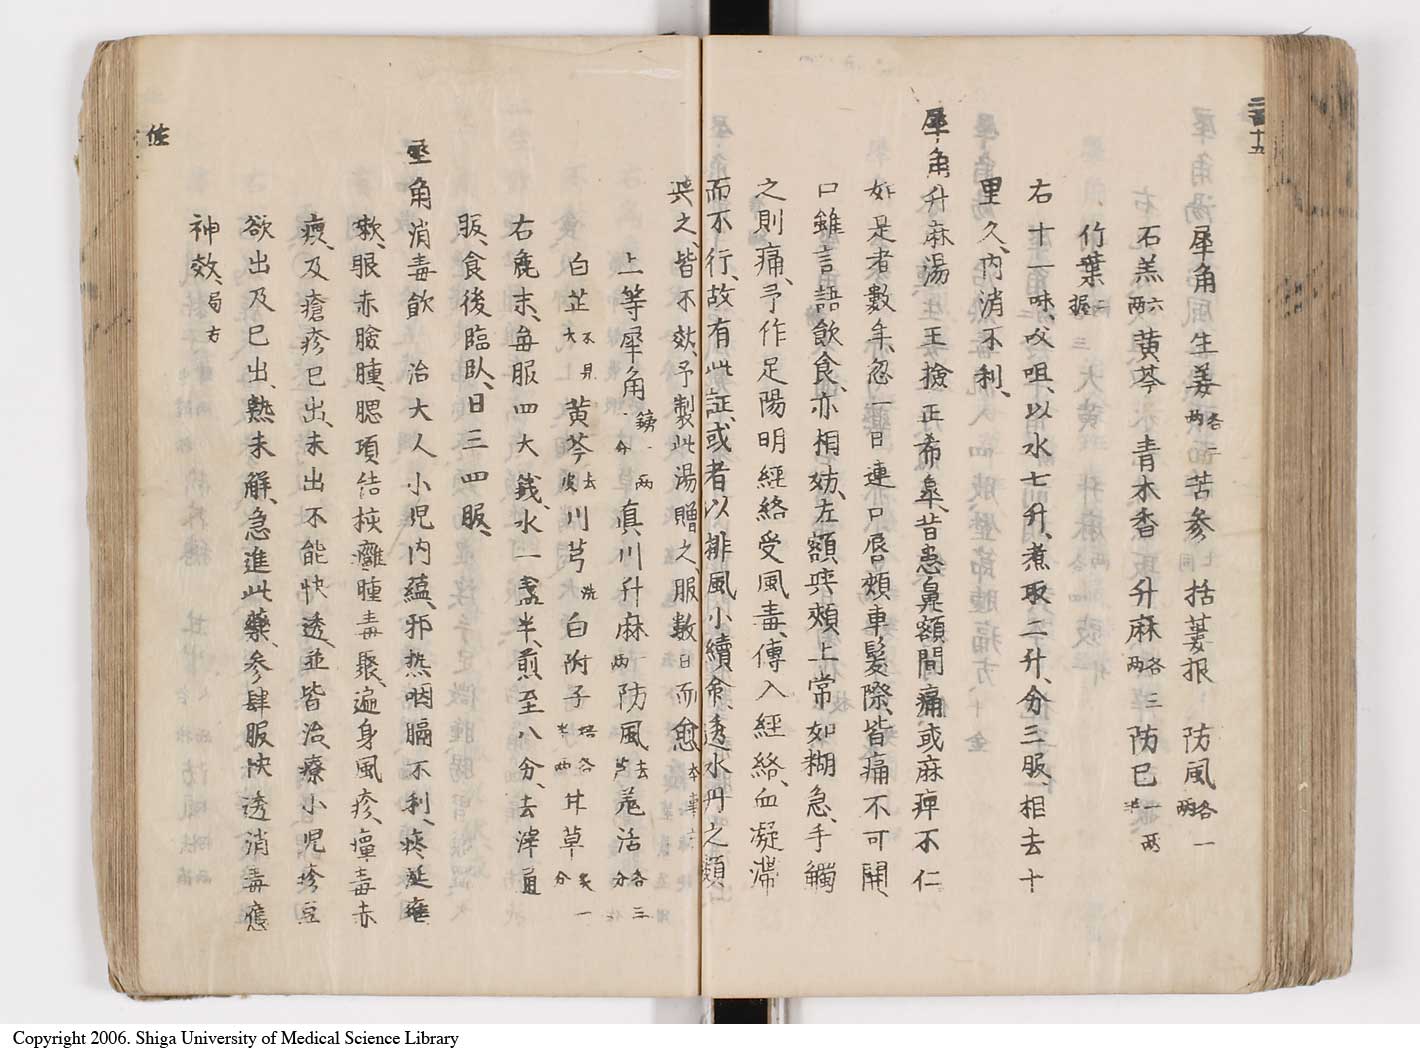 二百十五
犀角湯 犀角 生姜各二両 苦参 七同 括蔞根 防風各一両
石羔六両 黄芩 青木香 升麻各三両 防已一両半
竹葉二握
右十一味、㕮咀、以水七升、煮取二升、分三服、相去十
里久、内消不利、
犀角升麻湯 王撿正希皐、昔患鼻額間痛、或麻痺不仁
如是者數年、忽一日連口唇頬車髮際、皆痛不可開
口、雖言語飲食、亦相妨、左額與頬上常如糊急、手觸
之則痛、予作足陽明經絡受風毒、傳入經絡、血凝滞
而不行、故有此証、或者以排風小續命、透氷丹之類
與之、皆不效、予製此湯贈之、服數日而愈 本事方
上等犀角鎊一両一分 真川升麻一両 防風去芦 羗活各三分
白芷不見火 黄芩去皮 川芎洗 白附子炮各半両 甘草炙一分
右麁末、毎服四大錢、水一盞半、煎至八分、去滓、通
服、食後臨臥、日三四服、
犀角消毒飲 治大人小児内蘊邪熱、咽膈不利、痰涎壅
嗽、眼赤臉腫、腮項結核、癰腫毒聚、遍身風疹、癉毒赤
瘭、及瘡疹已出、未出不能快透、並皆治療、小児疹豆
欲出及已出、熱未解、急進此藥、参肆服快透消毒應
神效、局方
佐
Copyright 2006. Shiga University of Medical Science Library